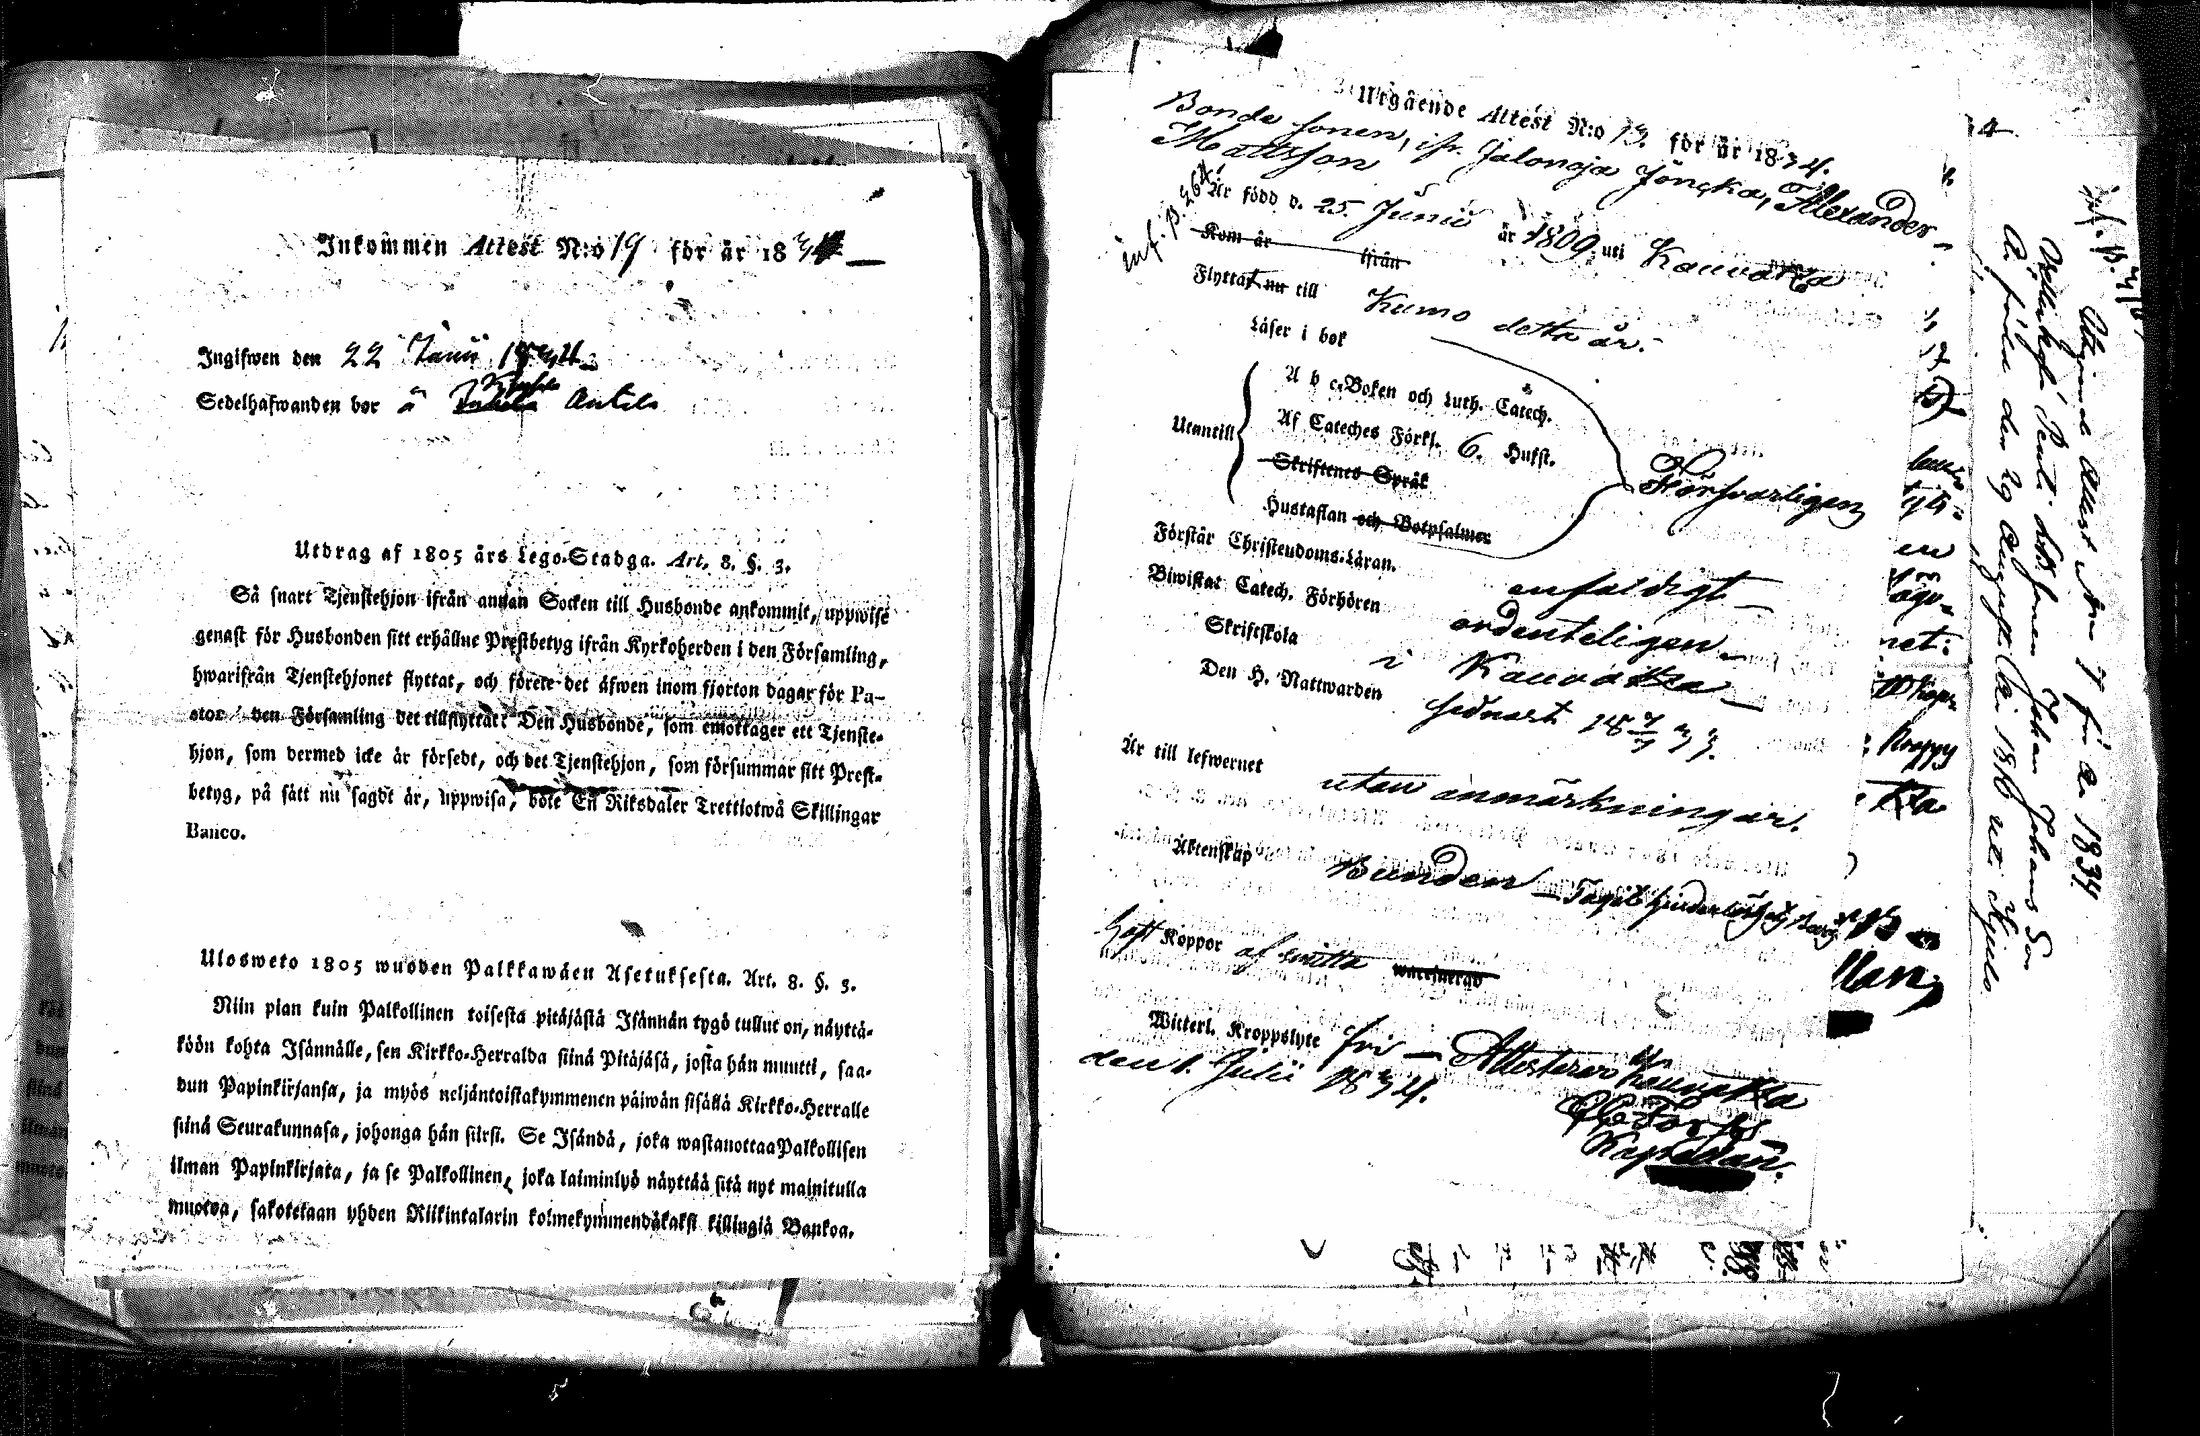 Inkommen Attest N:o 19 för år 1834
Ingifwen den 22 Junii 1834
Sedelhafwanden bor å Antila
Utdrag af 1805 års Lego-Stadga. Art. 8. §. 3.
Så snart Tjenstehjon ifrån annan Socken till Husbonde ankommit, uppwise
genast för Husbonden sitt erhållne Prestbetyg ifrån Kyrkoherden i den Församling,
hwarifrån Tjenstehjonet flyttat, och förete det äfwen inom fjorton dagar för Pa-
stor i den Församling det tillflyttat: Den Husbonde, som emottager ett Tjenste-
hjon, som dermed icke är försedt, och det Tjenstehjon, som försummar sitt Prest-
betyg, på sätt nu sagdt är, uppwisa, böte En Riksdaler Trettiotwå Skillingar
Banco.
Ulosweto 1805 wuoden Palkkawäen Asetuksesta. Art. 8. §. 3.
Niin pian kuin Palkollinen toisesta pitäjästä Isännän tygö tullut on, näyttä-
köön kohta Isännälle, sen Kirkko-Herralda siinä Pitäjäsä, josta hän muutti, saa-
dun Papinkirjansa, ja myös neljäntoistakymmenen päiwän sisällä Kirkko-Herralle
siinä Seurakunnasa, johonga hän siirsi. Se Isändä, joka wastanottaa Palkollisen
ilman Papinkirjata, ja se Palkollinen, joka laiminlyö näyttää sitä nyt mainitulla
muotoa, sakotetaan yhden Riikintalarin kolmekymmendäkaksi killingiä Bankoa.
Utgående Attest N:o 13. för år 1834.
Bonde sonen, ifr. Jalonoja Jöngka, Alexander
Mattsson
inf. p. 264
Är född d. 25. Junii år 1809. uti Kauvatza
Kom år ifrån
Flyttat nu till Kumo detta år.
Läser i bok
Utantill
A b c-Boken och Luth. Catech.
Af Cateches Förkl. 6. Hufst.
Skriftenes Språk
Hustaflan och Botpsalmer
Försvarligen
Förstår Christendoms-Läran. enfaldigt
Biwistat Catech. Förhören ordenteligen
Skriftskola i Kauvatza
Den H. Nattwarden sednast
Är till lefwernet utan anmärkningar.
Äktenskap Bunden
Haft Koppor af smitta
Witterl. Kroppslyte fri — Attesterar Kauvatza
den 1. Julii 1834.
Kapellan.
Utgående Attest N:o 7 för år 1834
Johan Johans Son
är född den 29 Augusti år 1816 uti Kjulo